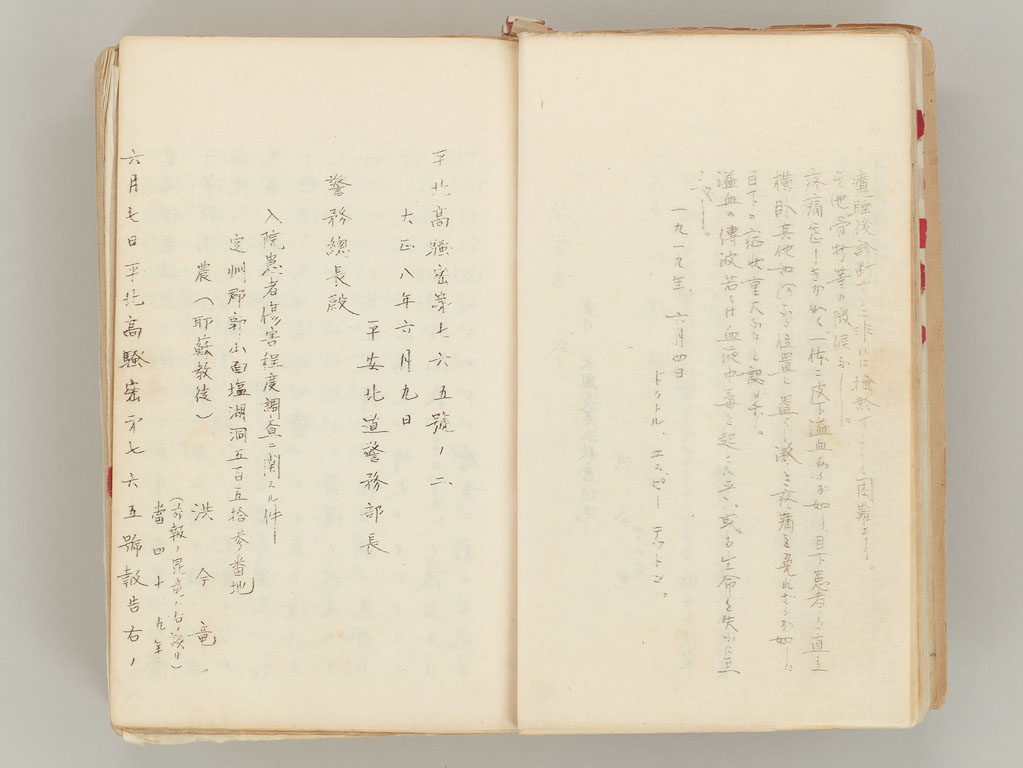 魔睡後診断スルニ非レバ検診スルコト困難ナリ。
其他骨折等ノ徴候ナシ
疼痛
一体ニ皮下溢血アルガ如シ目下患者ハ直立
横臥其他如何ナル位置ニ置クモ激シキ疼痛ヲ免レザルガ如シ
目下ノ病状重大ナリト認メ候。
溢血ノ傳波若クハ血液中毒ヲ起こス
或ハ生命ヲ失フニ至
一九一九年、六月四日
ドクトル、エスピー テットン。
平北高騒密第七六五號ノ二
大正八年六月九日
平安北道警務部長
警務總長殿
入院患者傷害程度調査ニ関スル件
定州郡郭山面塩湖洞五百五拾参番地
農(耶蘇教徒)
洪今竜
(前報ノ昆竜ハ右ノ誤リ)
當四十九年
六月七日平北高騒密第七六五號報告右ノ